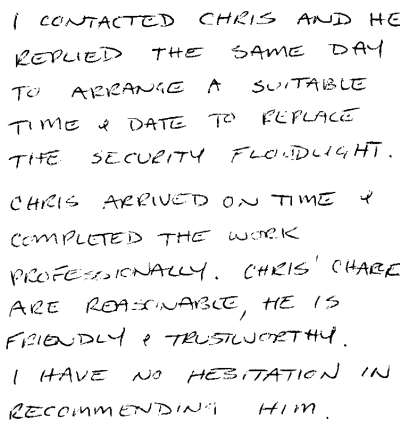 I CONTACTED CHRIS AND HE
REPLIED THE SAME DAY
TO ARRANGE A SUITABLE
TIME & DATE TO REPLACE
THE SECURITY FLOODLIGHT.
CHRIS ARRIVED ON TIME &
COMPLETED THE WORK
PROFESSIONALLY. CHRIS' CHARGE
ARE REASONABLE, HE IS
FRIENDLY & TRUSTWORTHY.
I HAVE NO HESITATION IN
RECOMMENDING HIM.